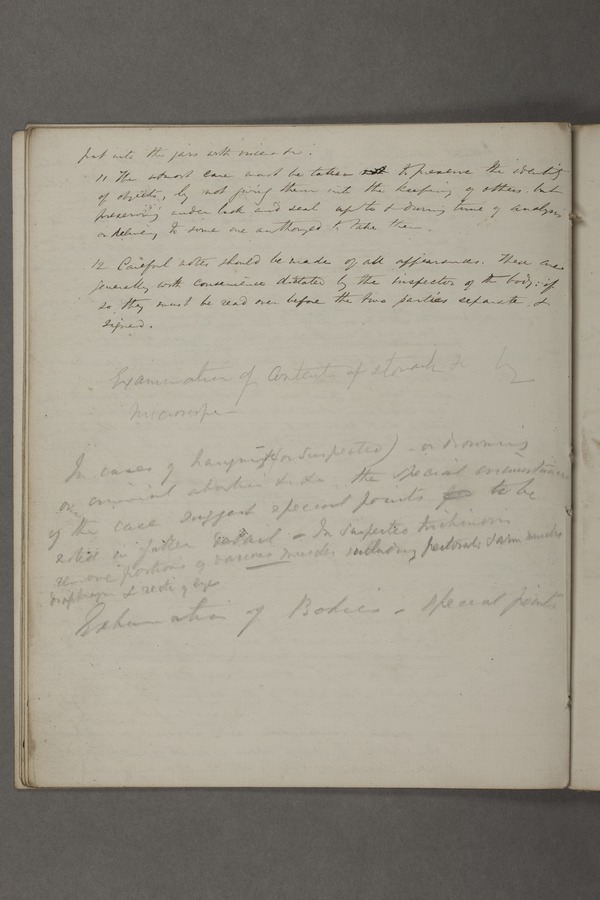 put into the jars with viscera &c.
11 The utmost care must be taken to preserve the identity
of objects, by not giving them into the keeping of others, but
preserving under lock and seal up to & during time of analysis
or delivery to some one authorized to take them.
12 Careful notes should be made of all appearances. These are
generally with convenience dictated by the inspector of the body; if
so they must be read over before the two parties separate &
signed.
Examination of Contents of stomach &c by
microscope
In cases of hanging (or suspected) - or drowning
or criminal abortion &c &c the special circumstances
of the case suggest special points to be
noted in fuller detail - In suspected trichinosis
remove portions of various muscles including pectorals & arm muscles
diaphragm & recti of eye
Exhumation of Bodies - special points